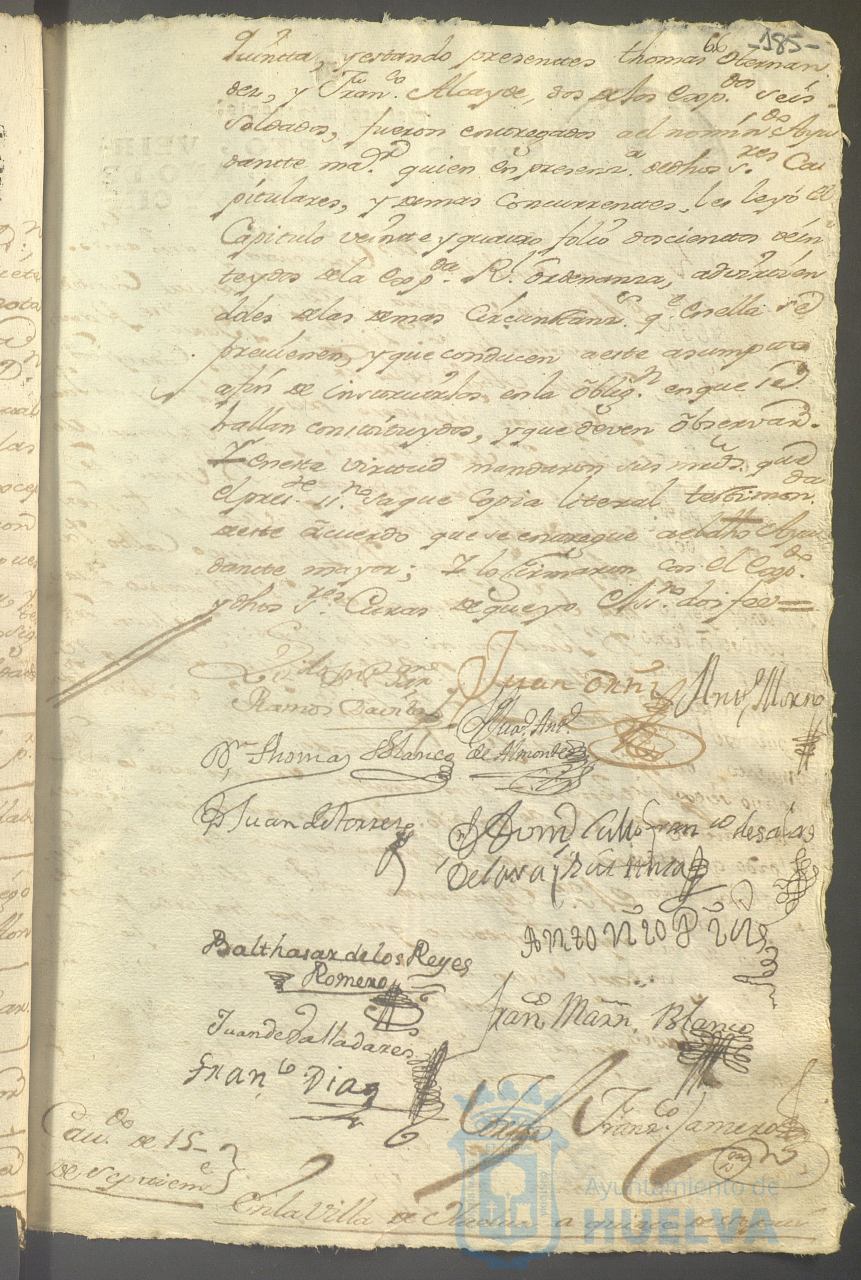 66 -185-
Quintta, y estando presenttes thomas Hernan
dez, y Fran.co Alcayde, dos de los Exp.dos seis
soldados, fueron entregados a el nomin.do Ayu
dantte ma.or quien en presenz.a de dhos s.res Ca
pitulares, y demas concurrenttes, les leyó el
Capitulo veintte y quattro folio doscientos vein
te y dos de la Exp.da R.l ordenanza, advirtien
doles de las demas circunstanz.s q.e en ella se
previenen, y que conducen a este asumpto
a fin de instruirlos en la oblig.n en que se
hallan constituydos, y que deven observar.
Y en esta virttud mandaron sus mrds. que
el pres.te ss.no saque Copia literal testimon.da
de este acuerdo que se entregue a el dho Ayu
dantte mayor; Y lo firmaron con el Exp.do
y dhos s.res Curas de que yo el ss.no doi fee=
Ramos Davila
Juan Ortiz
Ant.o Moreno
D.n Thomas Blanco
Juan Ant.o
de Almonte
D Juan de torres
Fran.co de salas
De lara y
Antonio
Balthasar de los Reyes
Romero
Fran.co Marn. Blanco
Juan de Valladares
Fran.co Diaz
Franz.co Jamero
Cav.do de 15
de septiem.e
En la Villa de Huelva a quinze de
Ayuntamiento de
HUELVA